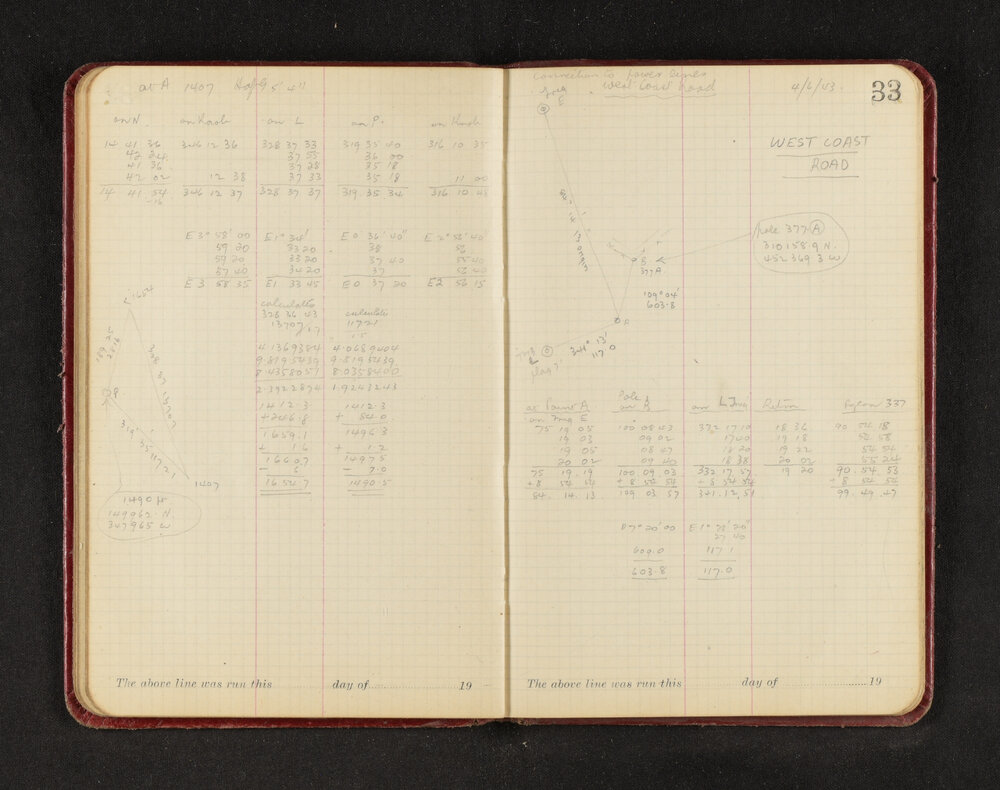 at A 1407
on N. on Knob on L on P. on Knob
14 41 36 346 12 36 328 37 33 319 35 40 316 10 35
42 24 37 55 36 00
41 36 37 28 35 18
42 02 12 38 37 33 35 18 11 00
14 41 54 346 12 37 328 37 37 319 35 34 316 10 48
-16
E 3° 58' 00 E 1° 34' E 0° 36' 40" E 2° 56' 40"
59 20 33 20 38 56
59 20 33 20 37 40 55 40
57 40 34 20 37 56 40
E 3 58 35 E1 33 45 E0 37 20 E2 56 15
1654
calculated calculated
328 36 43 11721
13707
4.1369384 4.0689404
9.8195439 9.8195439
8.4358051 8.0358400
2.3922874 1.9243243
1412.3 1412.3
+246.8 + 84.0
1659.1 1496.3
+ 1.6 + 1.2
1660.7 1497.5
- 6 - 7.0
1654.7 1490.5
328 37 13707
P
319° 35 11721
1407
1490 ft
149962 N.
347965 W
connection to power lines
West Coast Road
4/6/43.
33
Trig
E
WEST COAST
ROAD
pole 377 A
310158.9 N.
452369.3 W
84° 14' 13" origin
B
377A
109° 04'
603.8
A
Trig
L
flag
341° 13'
117.0
at Point A Pole on B on L Trig Return Pylon 337
on Trig E
75 19 05 100 08 43 332 17 10 18 36 90 54 18
19 03 09 02 17 40 19 18 54 58
19 05 08 47 18 20 19 22 54 54
20 02 09 40 18 38 20 02 55 24
75 19 19 100 09 03 332 17 57 19 20 90 54 53
+8 54 54 +8 54 54 +8 54 54 +8 54 54
84 14 13 109 03 57 341.12.51 99. 49. 47
D 7° 20' 00 E 1° 28' 20"
27 40
609.0 117.1
603.8 117.0
The above line was run this day of 19
The above line was run this day of 19